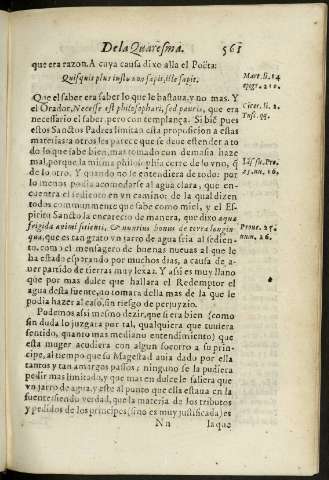 De la Quaresma. 561
que era razon. A cuya causa dixo alla el Poëta:
Quisquis plus iusto non sapit, ille sapit. Mart. li. 14
epigr. 210.
Que el saber era saber lo que le bastaua, y no mas. Y
el Orador, Necesse est philosophari, sed paucis, que era Cicer. li. 2.
necessario el saber, pero con templança. Si biẽ pues Tusc. qq.
estos Sanctos Padres limitan esta proposicion a estas
materias: a otros les parece que se deue estender a to
do lo que sabe bien, mas tomado con demasia haze
mal, porque la misma philosophia corre de lo vno, q̃
de lo otro. Y quando no le entendiera de todo: por 25. nu. 16.
lo menos podia acomodarse al agua clara, que en-
cuentra el sediento en vn camino: de la qual dizen
todos communmente que sabe como miel, y el Es-
piritu Sancto la encarece de manera, que dixo aqua
frigida animæ sitienti, & nuntius bonus de terra longin Prouer. 25.
qua, que es tan grato vn jarro de agua fria al sedien- num. 26.
to, como el mensagero de buenas nueuas al que le
ha estado esperando por muchos dias, a causa de a-
uer partido de tierras muy lexas. Y assi es muy llano
que por mas dulce que hallara el Redemptor el
agua desta fuente, no tomara della mas de la que le
podia hazer al caso, sin riesgo de perjuyzio.
Podemos assi mesmo dezir, que si era bien (como
sin duda lo juzgara por tal, qualquiera que tuuiera
sentido, quanto mas mediano entendimiento) que
esta muger acudiera con algun socorro a su prin-
cipe, al tiempo que su Magestad auia dado por ella
tantos y tan amargos passos; ninguno se la pudiera
pedir mas limitado, y que mas en dulce le saliera que
vn jarro de agua, y este al punto que ella estaua en la
fuente: siendo verdad, que la materia de los tributos
y pedidos de los principes (sino es muy justificada) es
Nn la que